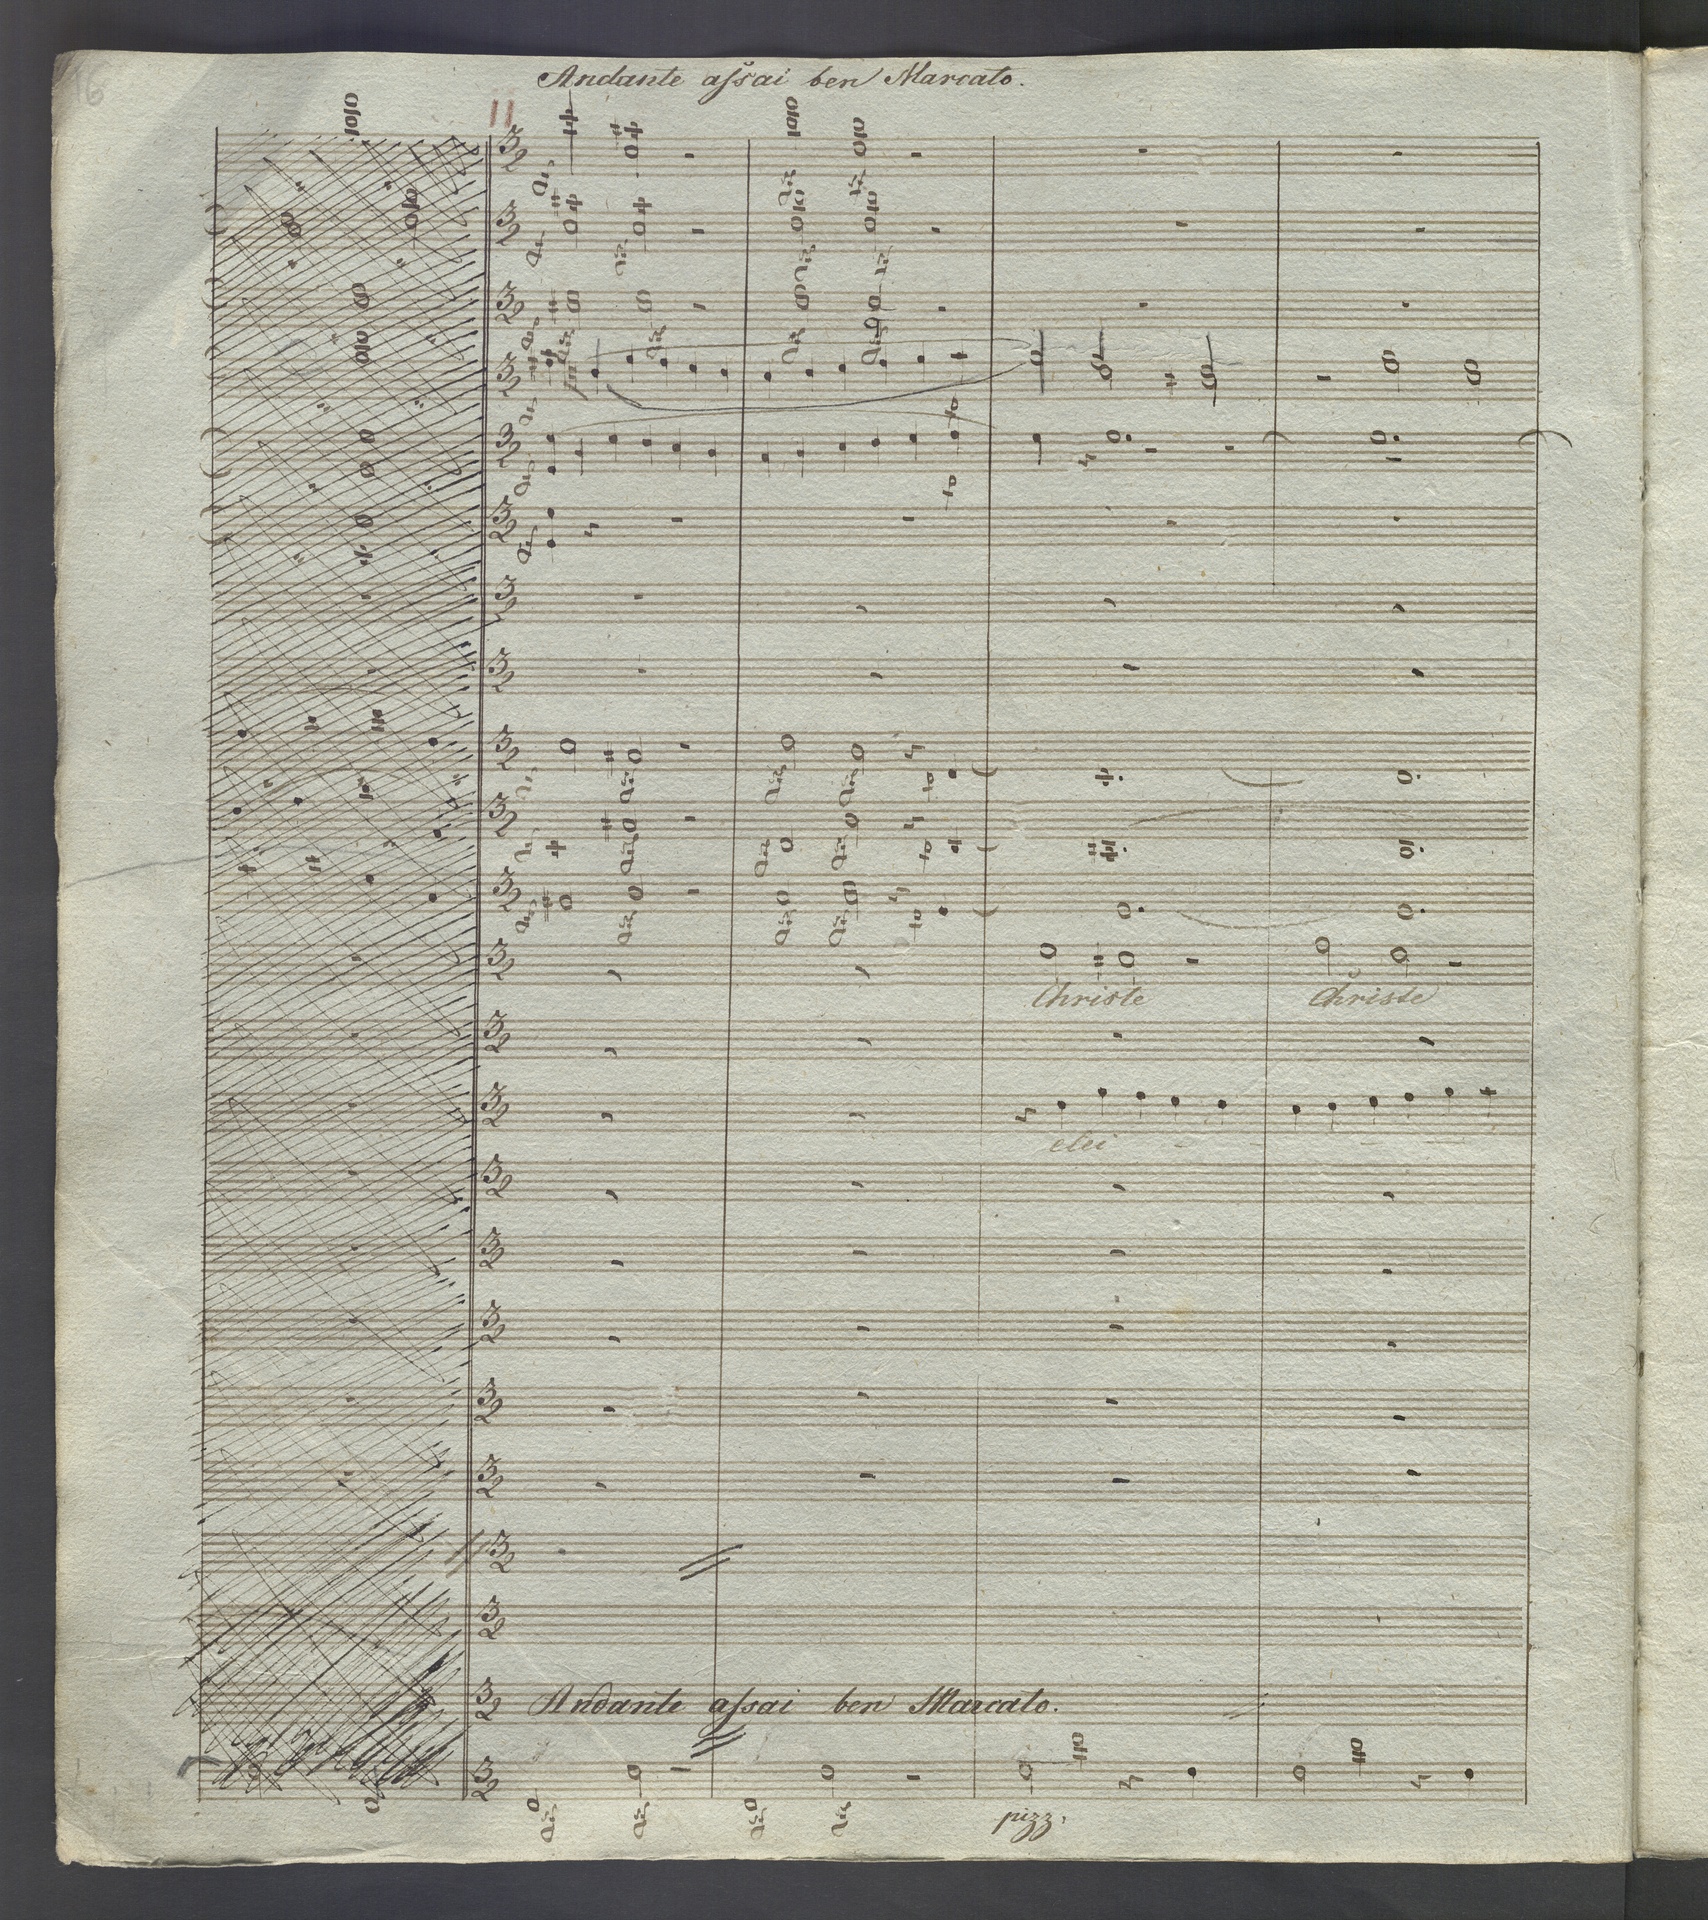 16
Andante aſsai ben Marcato.
11
Christe Christe
elei - - -
Andante aſsai ben Marcato.
pizz.